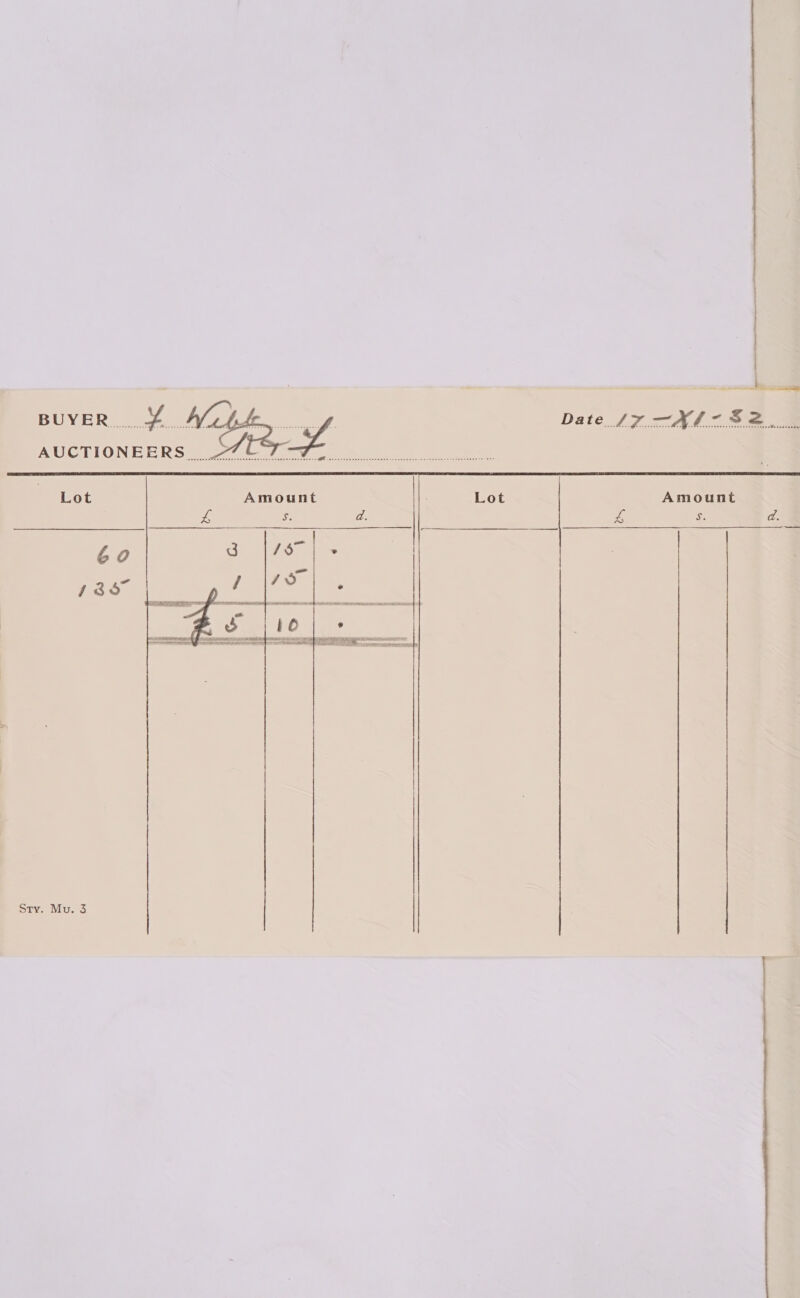 BUYER
Date 17-XI-32
AUCTIONEERS
Lot Amount Lot Amount
£ s. d. £ s. d.
60 3 15 .
135 1 15 .
£ 5 10 .
Sty. Mu. 3